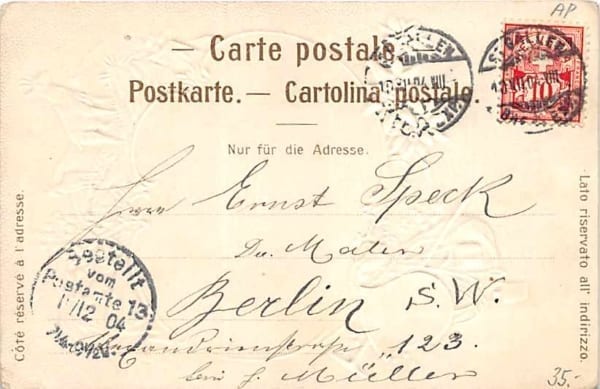 AP
— Carte postale. —
Postkarte. — Cartolina postale.
Nur für die Adresse.
Côté réservé à l'adresse.
Lato riservato all' indirizzo.
ST. GALLEN
ST. GALLEN
10
Herr Ernst Speck
Maler
Berlin S.W.
Alexandrinenstrasse 123.
bei H. Müller
Bestellt
vom
Postamte 13
1/12 04
35.-